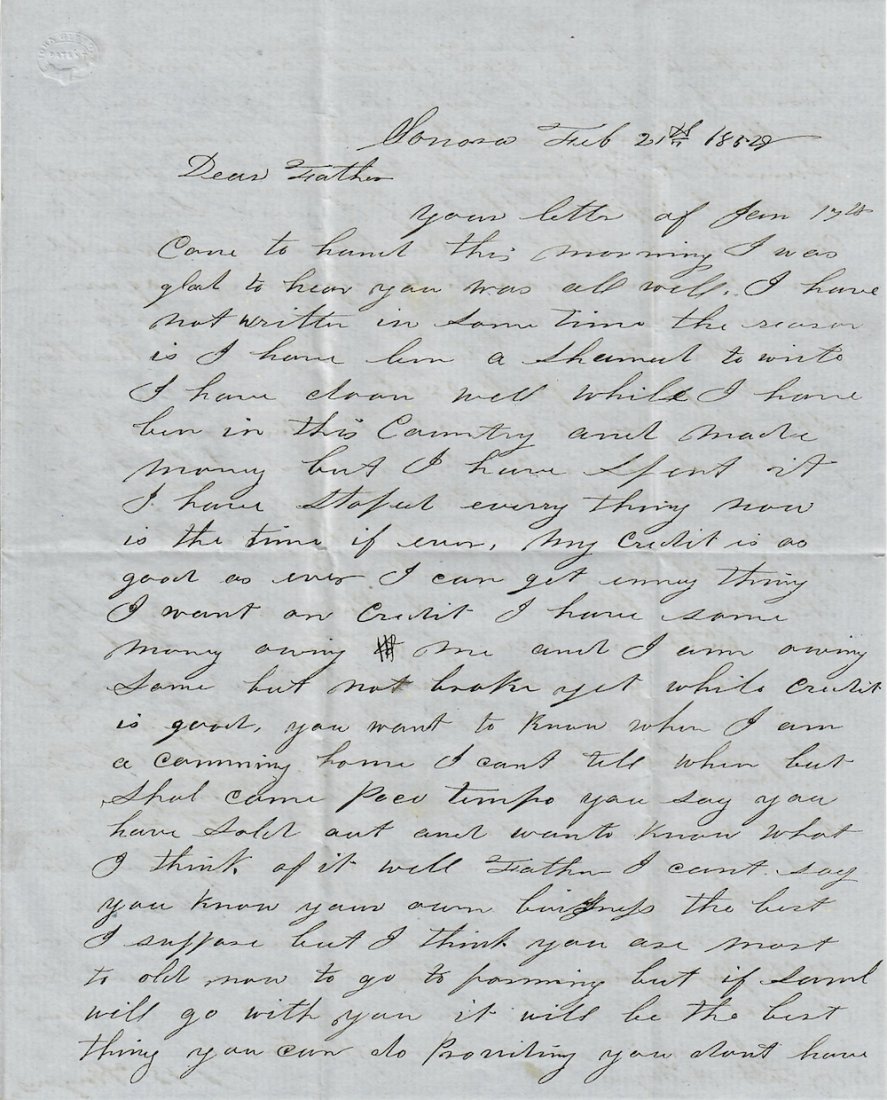 Sonora Feb 21st 1852
Dear Father
your letter of Jan 17th
Come to hand this morning I was
glad to hear you was all well. I have
not written in some time the reason
is I have ben a shamed to write
I have doan well while I have
ben in this Country and made
money but I have spent it
I have stoped everry thing now
is the time if ever, My credit is as
good as ever I can get enney thing
I want on Credit I have some
money owing me and I am owing
some but not broke yet while credit
is good, you want to know when I am
a comming home I cant tell when but
shal come Poco tempo you say you
have sold out and want to know what
I think of it well Father I cant say
you know your own buisness the best
I suppose but I think you are most
to old now to go to farming but if Saml
will go with you it will be the best
thing you can do Providing you dont have